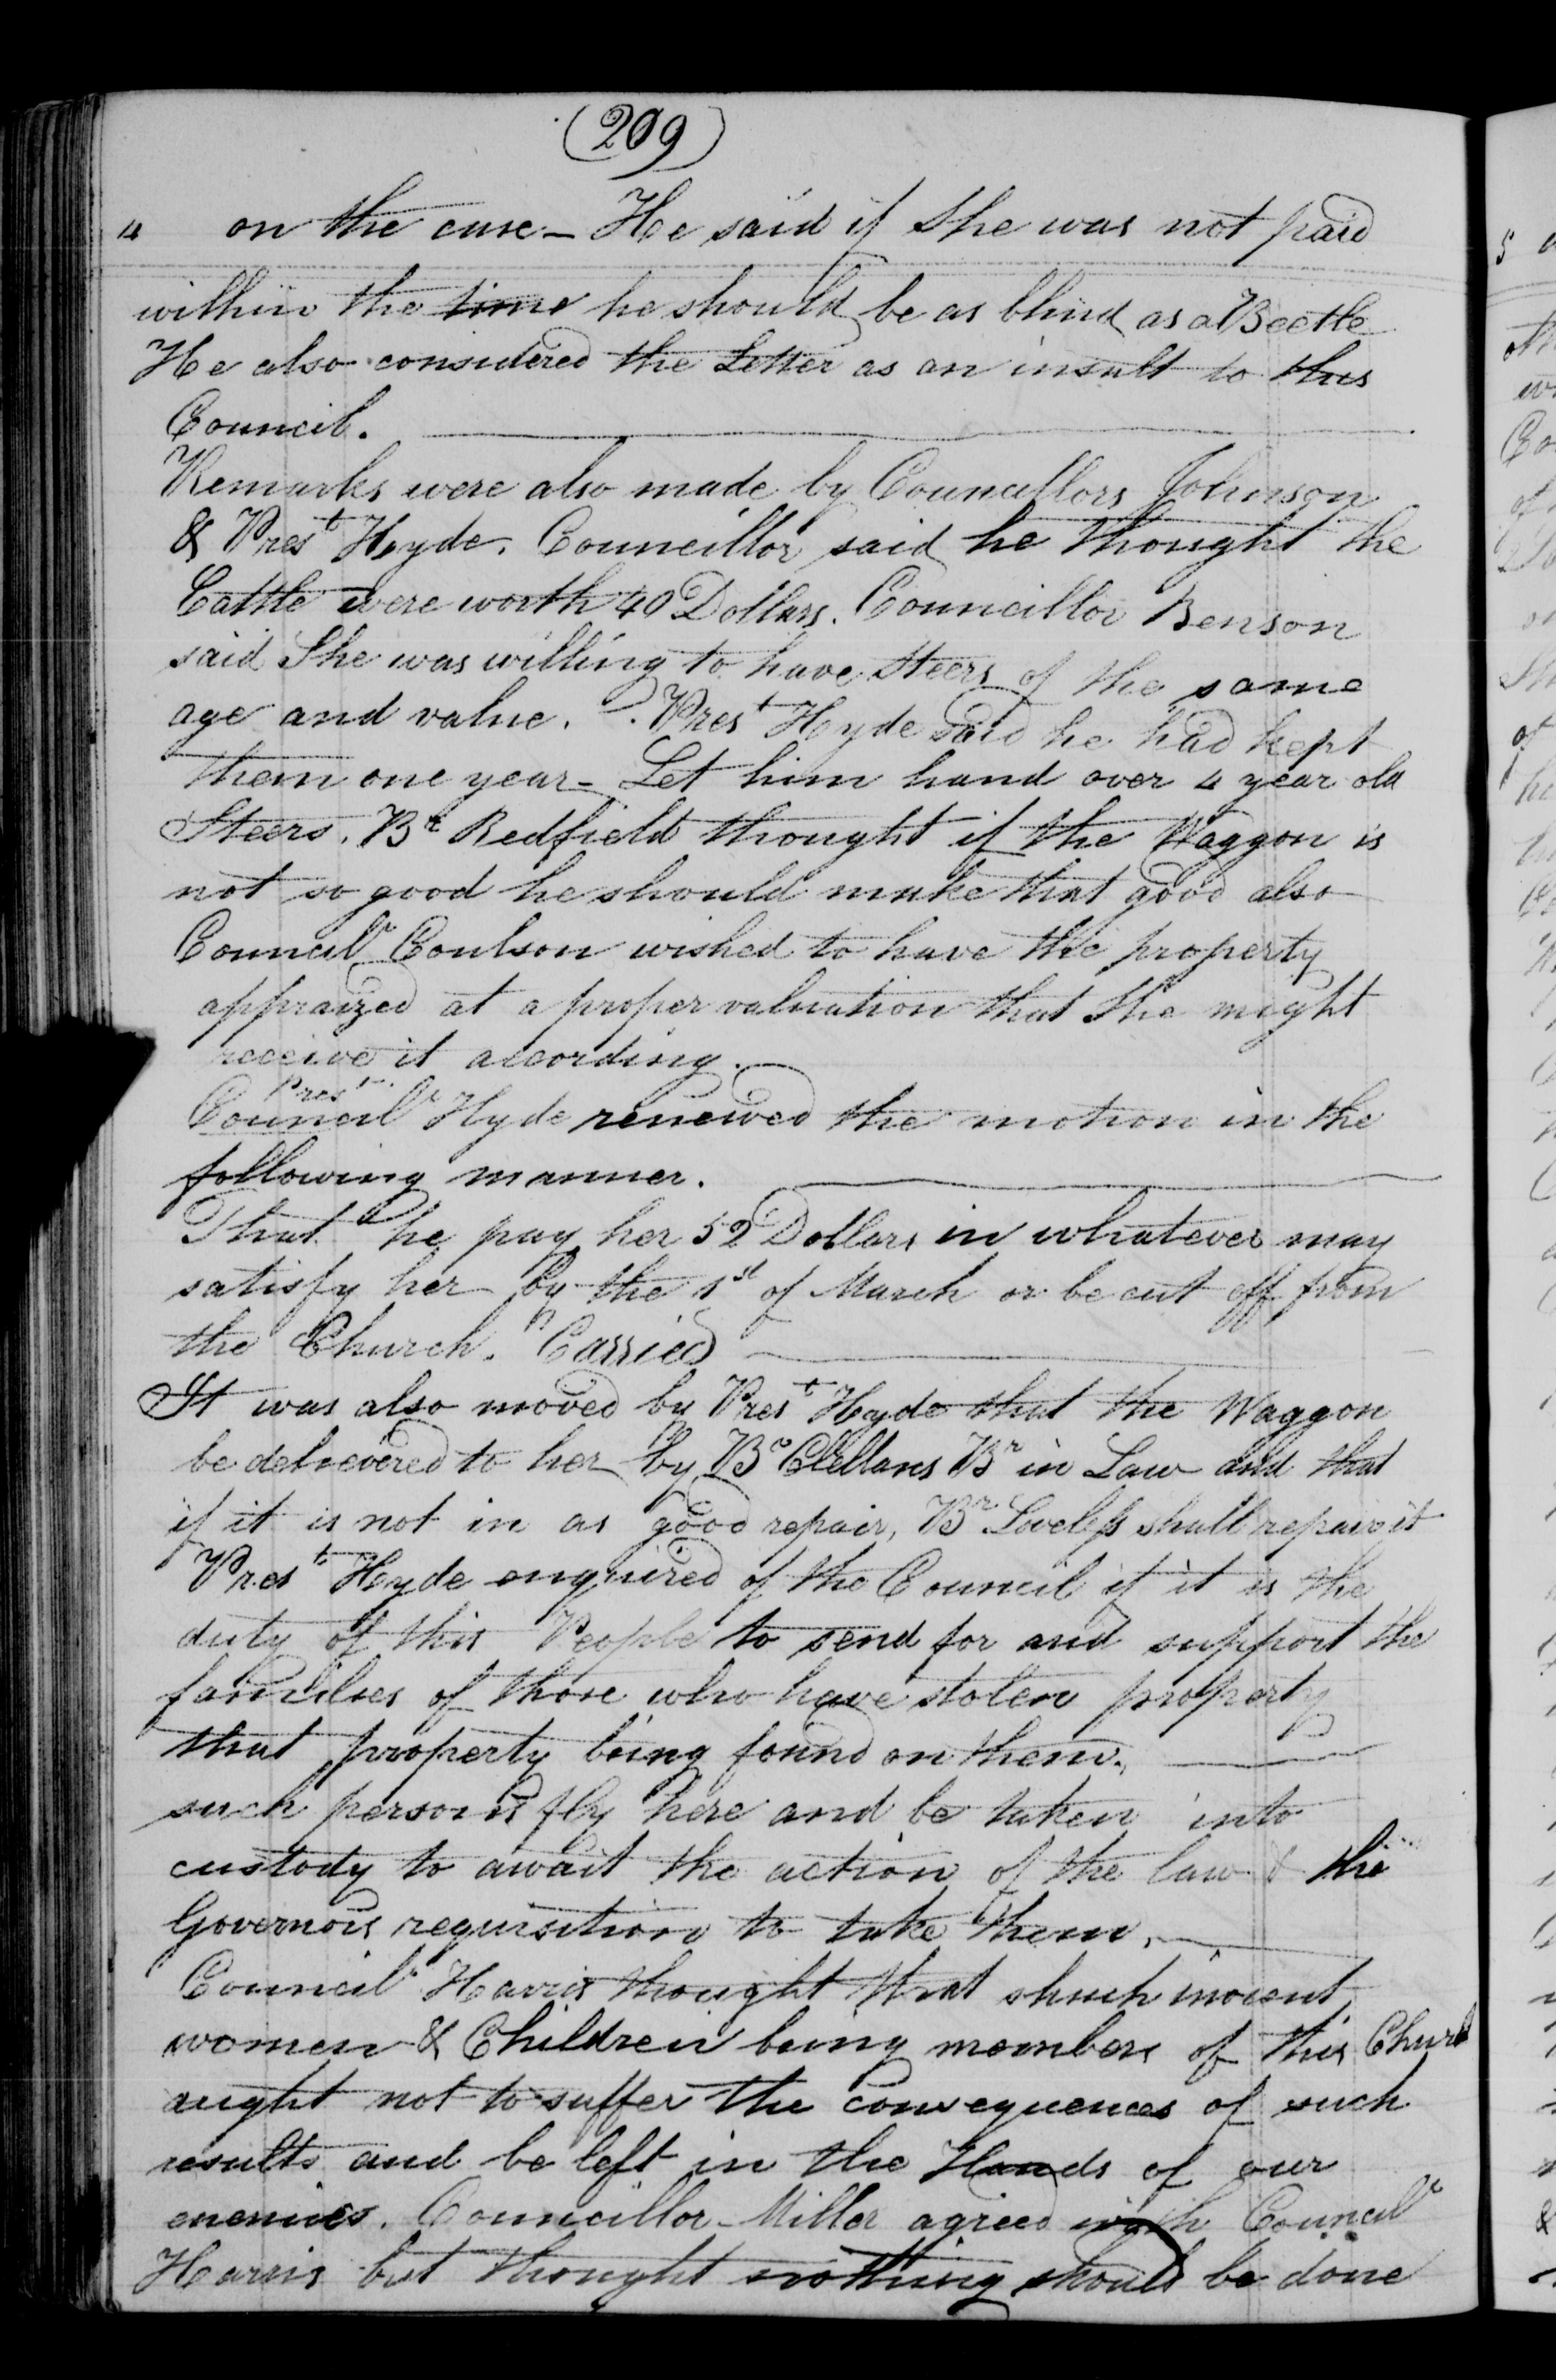 (209)
4 on the case – He said if she was not paid
within the time he should be as blind as a Beetle
He also considered the Letter as an insult to this
Council.
Remarks were also made by Councillors Johnson
& Prest Hyde. Councillor said he thought the
Cattle were worth 40 Dollars. Councillor Benson
said She was willing to have steers of the same
age and value. Prest Hyde said he had kept
them one year – Let him hand over 4 year old
Steers. Br Redfield thought if the Waggon is
not so good he should make that good also
Councilr Coulson wished to have the property
appraized at a proper valuation that She might
receive it according.
Prest
Councilr Hyde renewed the motion in the
following manner.
That he pay her 52 Dollars in whatever may
satisfy her by the 1st of March or be cut off from
the Church. Carried
It was also moved by Prest Hyde that the Waggon
be delievered to her by Br Clellans Br in Law and that
if it is not in as good repair, Br Loveless shall repair it
Prest Hyde enquired of the Council if it is the
duty of this People to send for and support the
families of those who have stolen property
that property being found on them.
such persons fly here and be taken into
custody to await the action of the law & the
Governors requisition to take them.
Councilr Harris thought that shuch inocent
women & Children being members of this Church
aught not to suffer the consequences of such
results and be left in the Hands of our
enemies. Councillor Miller agreed with Councilr
Harris but thought nothing should be done